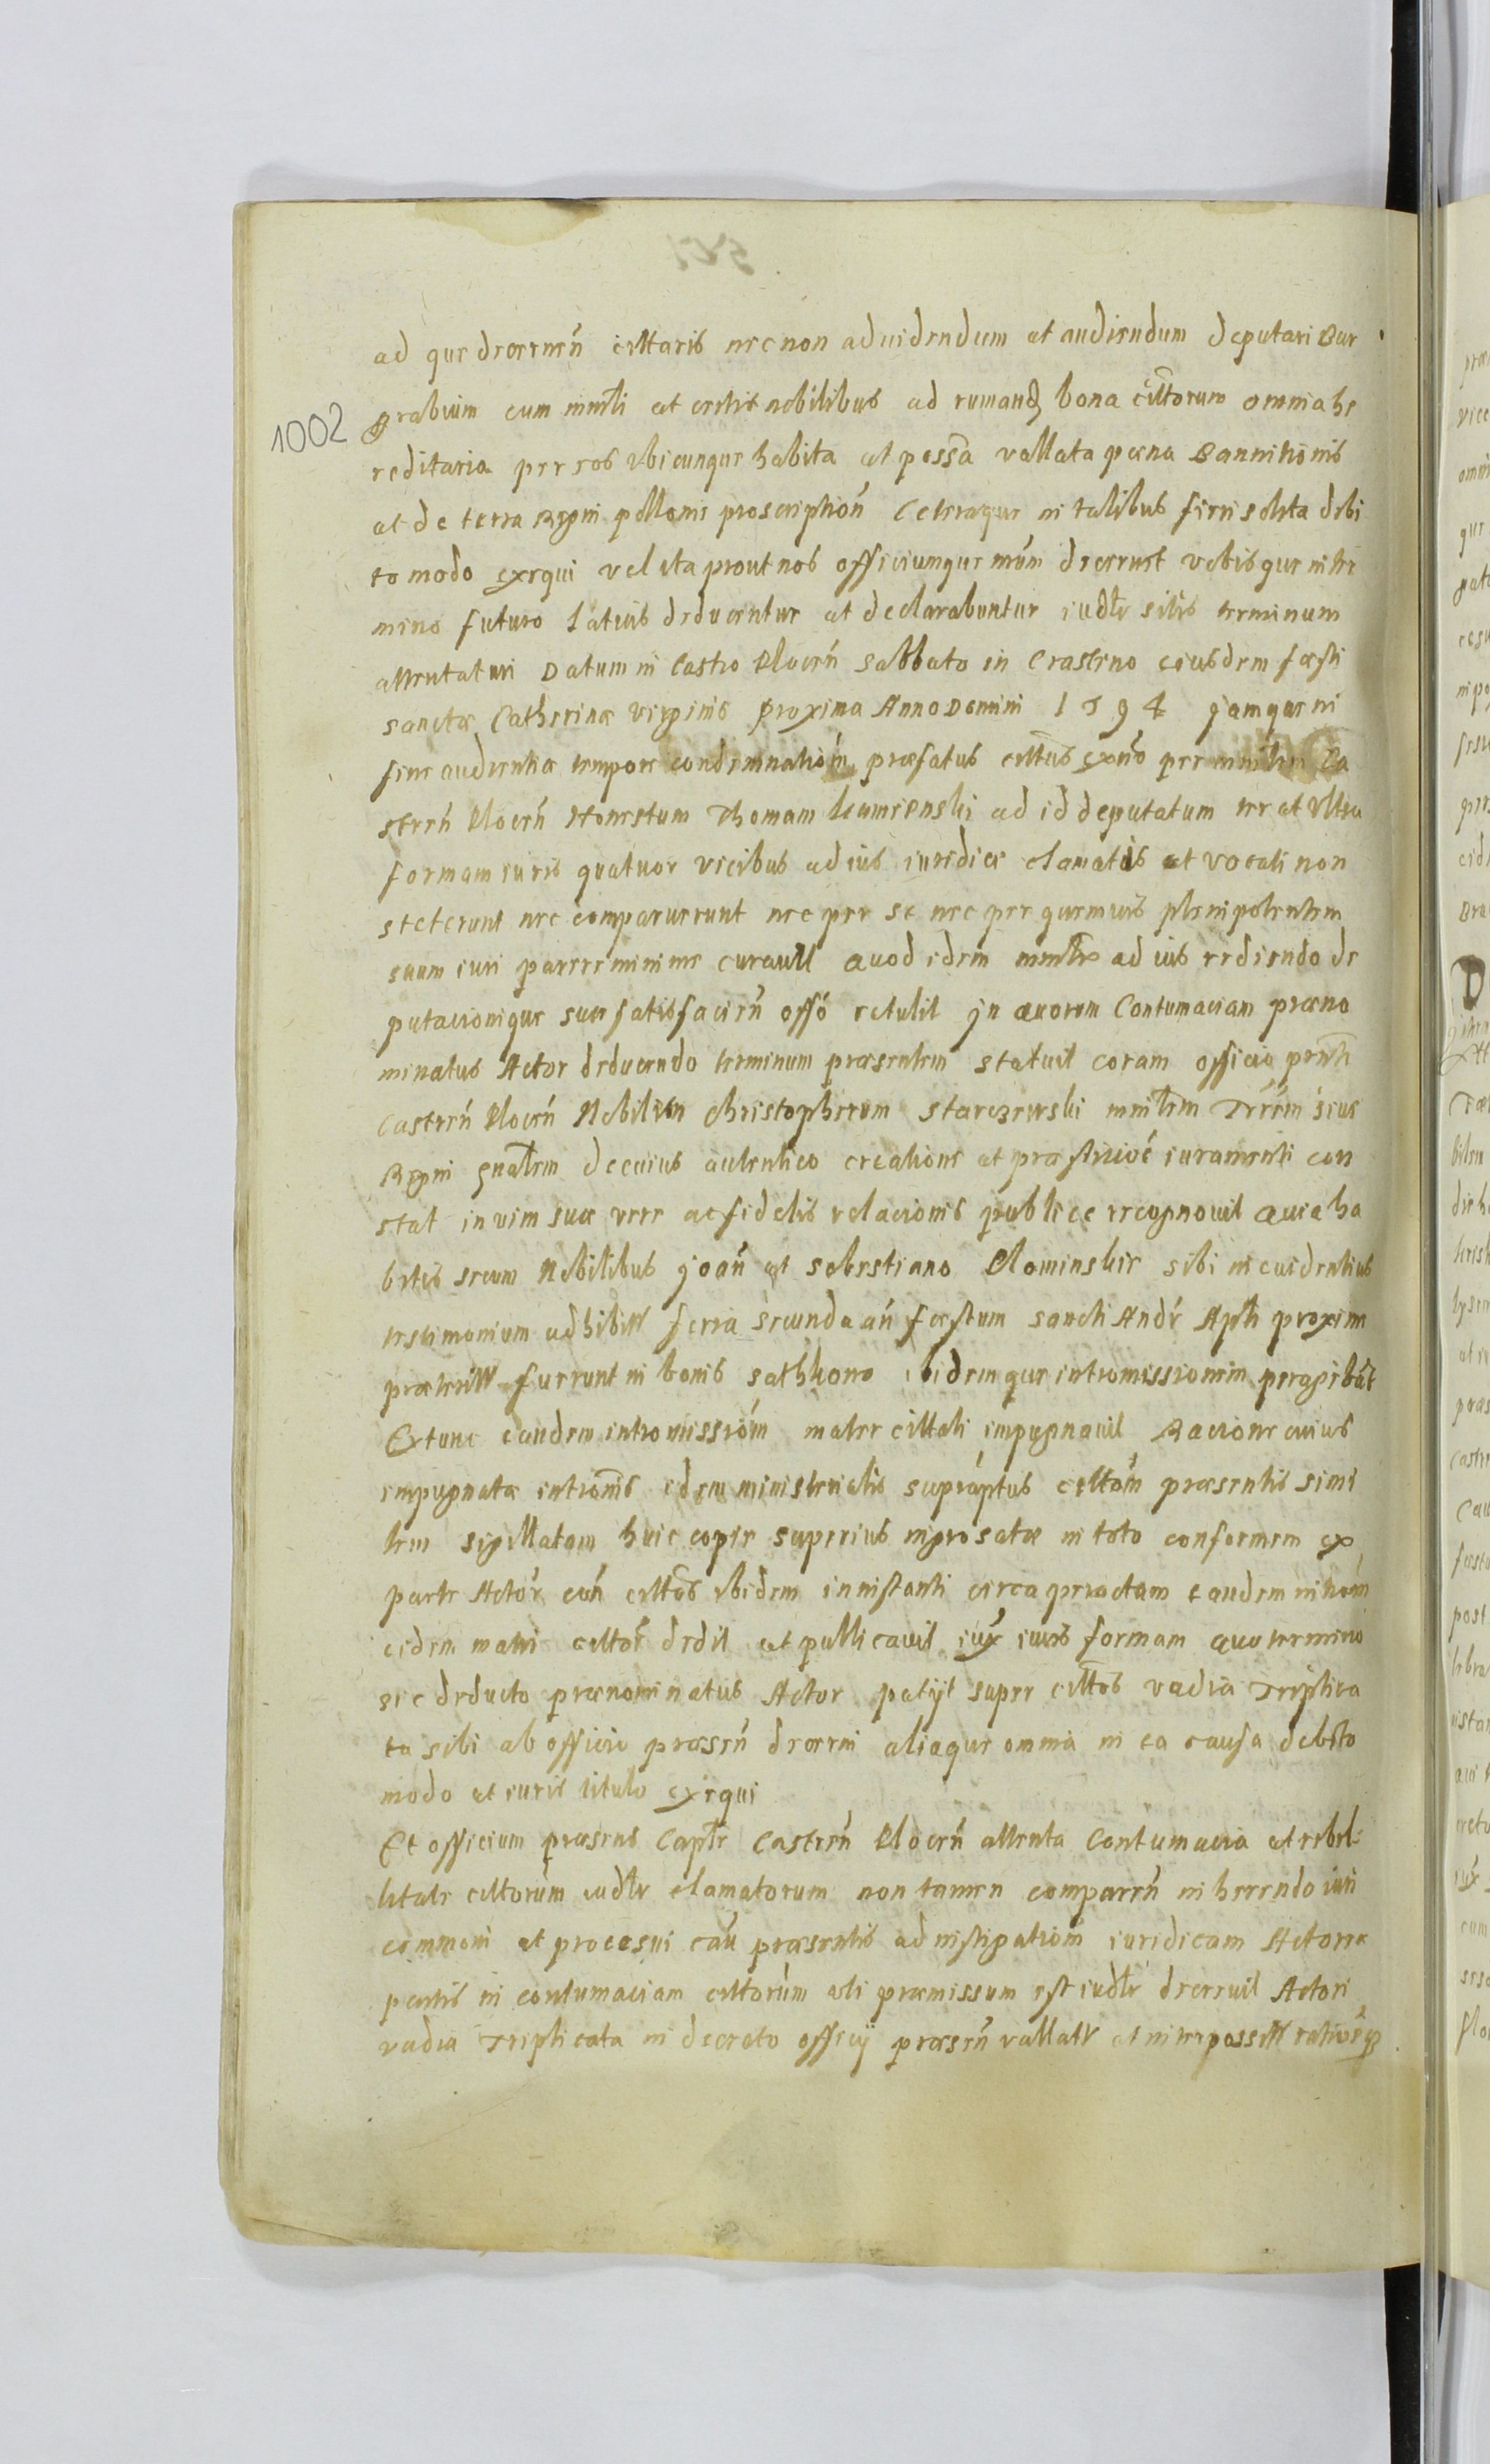 ad que decernen̄ cittaris necnon ad videndum et audiendum deputari Bur
grabium cum mnrli et certis nobilibus ad rumand bona cittorum omnia he
reditaria per eos vbicunque habita et possa vallata pœna Bannitionis
et de terra Regni pollonie proscription̄ Ceteraque in talibus fieri solita debi
to modo exequi vel ita prout nos officiumque nrūm decernet vobisque in ter
mino futuro latius deducentur et declarabuntur iudlr sitis terminum
attentaturi Datum in Castro Plocen̄ Sabbato in Crastino eiusdem fæsti
sanctæ Catherinæ virginis proxima Anno Domini 1594 jamque in
fine audientiæ tempore condemnatiom̄ præfatus cittus exn̄o per mnrlem Ca
stren̄ Plocen̄ Honestum Thomam Kumienski ad id deputatum ter et vltra
formam iuris quatuor vicibus ad ius iuridice clamatus et vocati non
steterunt nec comparuerunt nec per se nec per quemuis plenipotentem
suum iuri parere minime curauit Quod idem mnrlis ad ius redeundo de
putacionique suæ satisfacien̄ offō retulit In quorum Contumaciam præno
minatus Actor deducendo terminum præsentem statuit coram officio prnti
Castren̄ Plocen̄ Nobilem Christopherum Starczewski mnrlem Trrēm siue
Regni gnalem de cuius autentico creatione et præstitioē iuramenti con
stat in vim suæ veræ ac fidelis relacionis publice recognouit Quia ha
bitis secum Nobilibus Joan̄ et Sebestiano Plominskie sibi in euidentius
testimonium adhibitt feria secunda an̄ fæstum sancti Andr Apli proxime
præteritt fuerunt in bonis Sathkowo ibidemque intromissionem peragebāt
Extunc eandem intromissiōm mater cittati impugnauit Racione cuius
impugnatæ intromis idem ministerialis suprāptus cittōm præsentis simi
lem sigillatam huic copie superius ingrosatæ in toto conformem ex
parte Actōr con̄ cittos ibidem in instanti circa peractam eandem intrōm
eidem matri cittor̄ dedit et pullicauit iux iuris formam quo termino
sic deducto prænominatus Actor petijt super cittos vadia Triplica
ta sibi ab officio præsen̄ decerni aliaque omnia in ea causa debito
modo et iuris titulo exequi
Et officium præsens Captle Castren̄ Plocen̄ attenta Contumacia et rebel:
litate cittorum iudlr clamatorum non tamen comparen̄ inherendo iuri
communi et processui cau præsentis ad instigatiom̄ iuridicam Actoreæ
partis in contumaciam cittorum vti præmissum est iudlr decreuit Actori
vadia Triplicata in decreto officij præsen̄ vallatt et interpossitt
1002